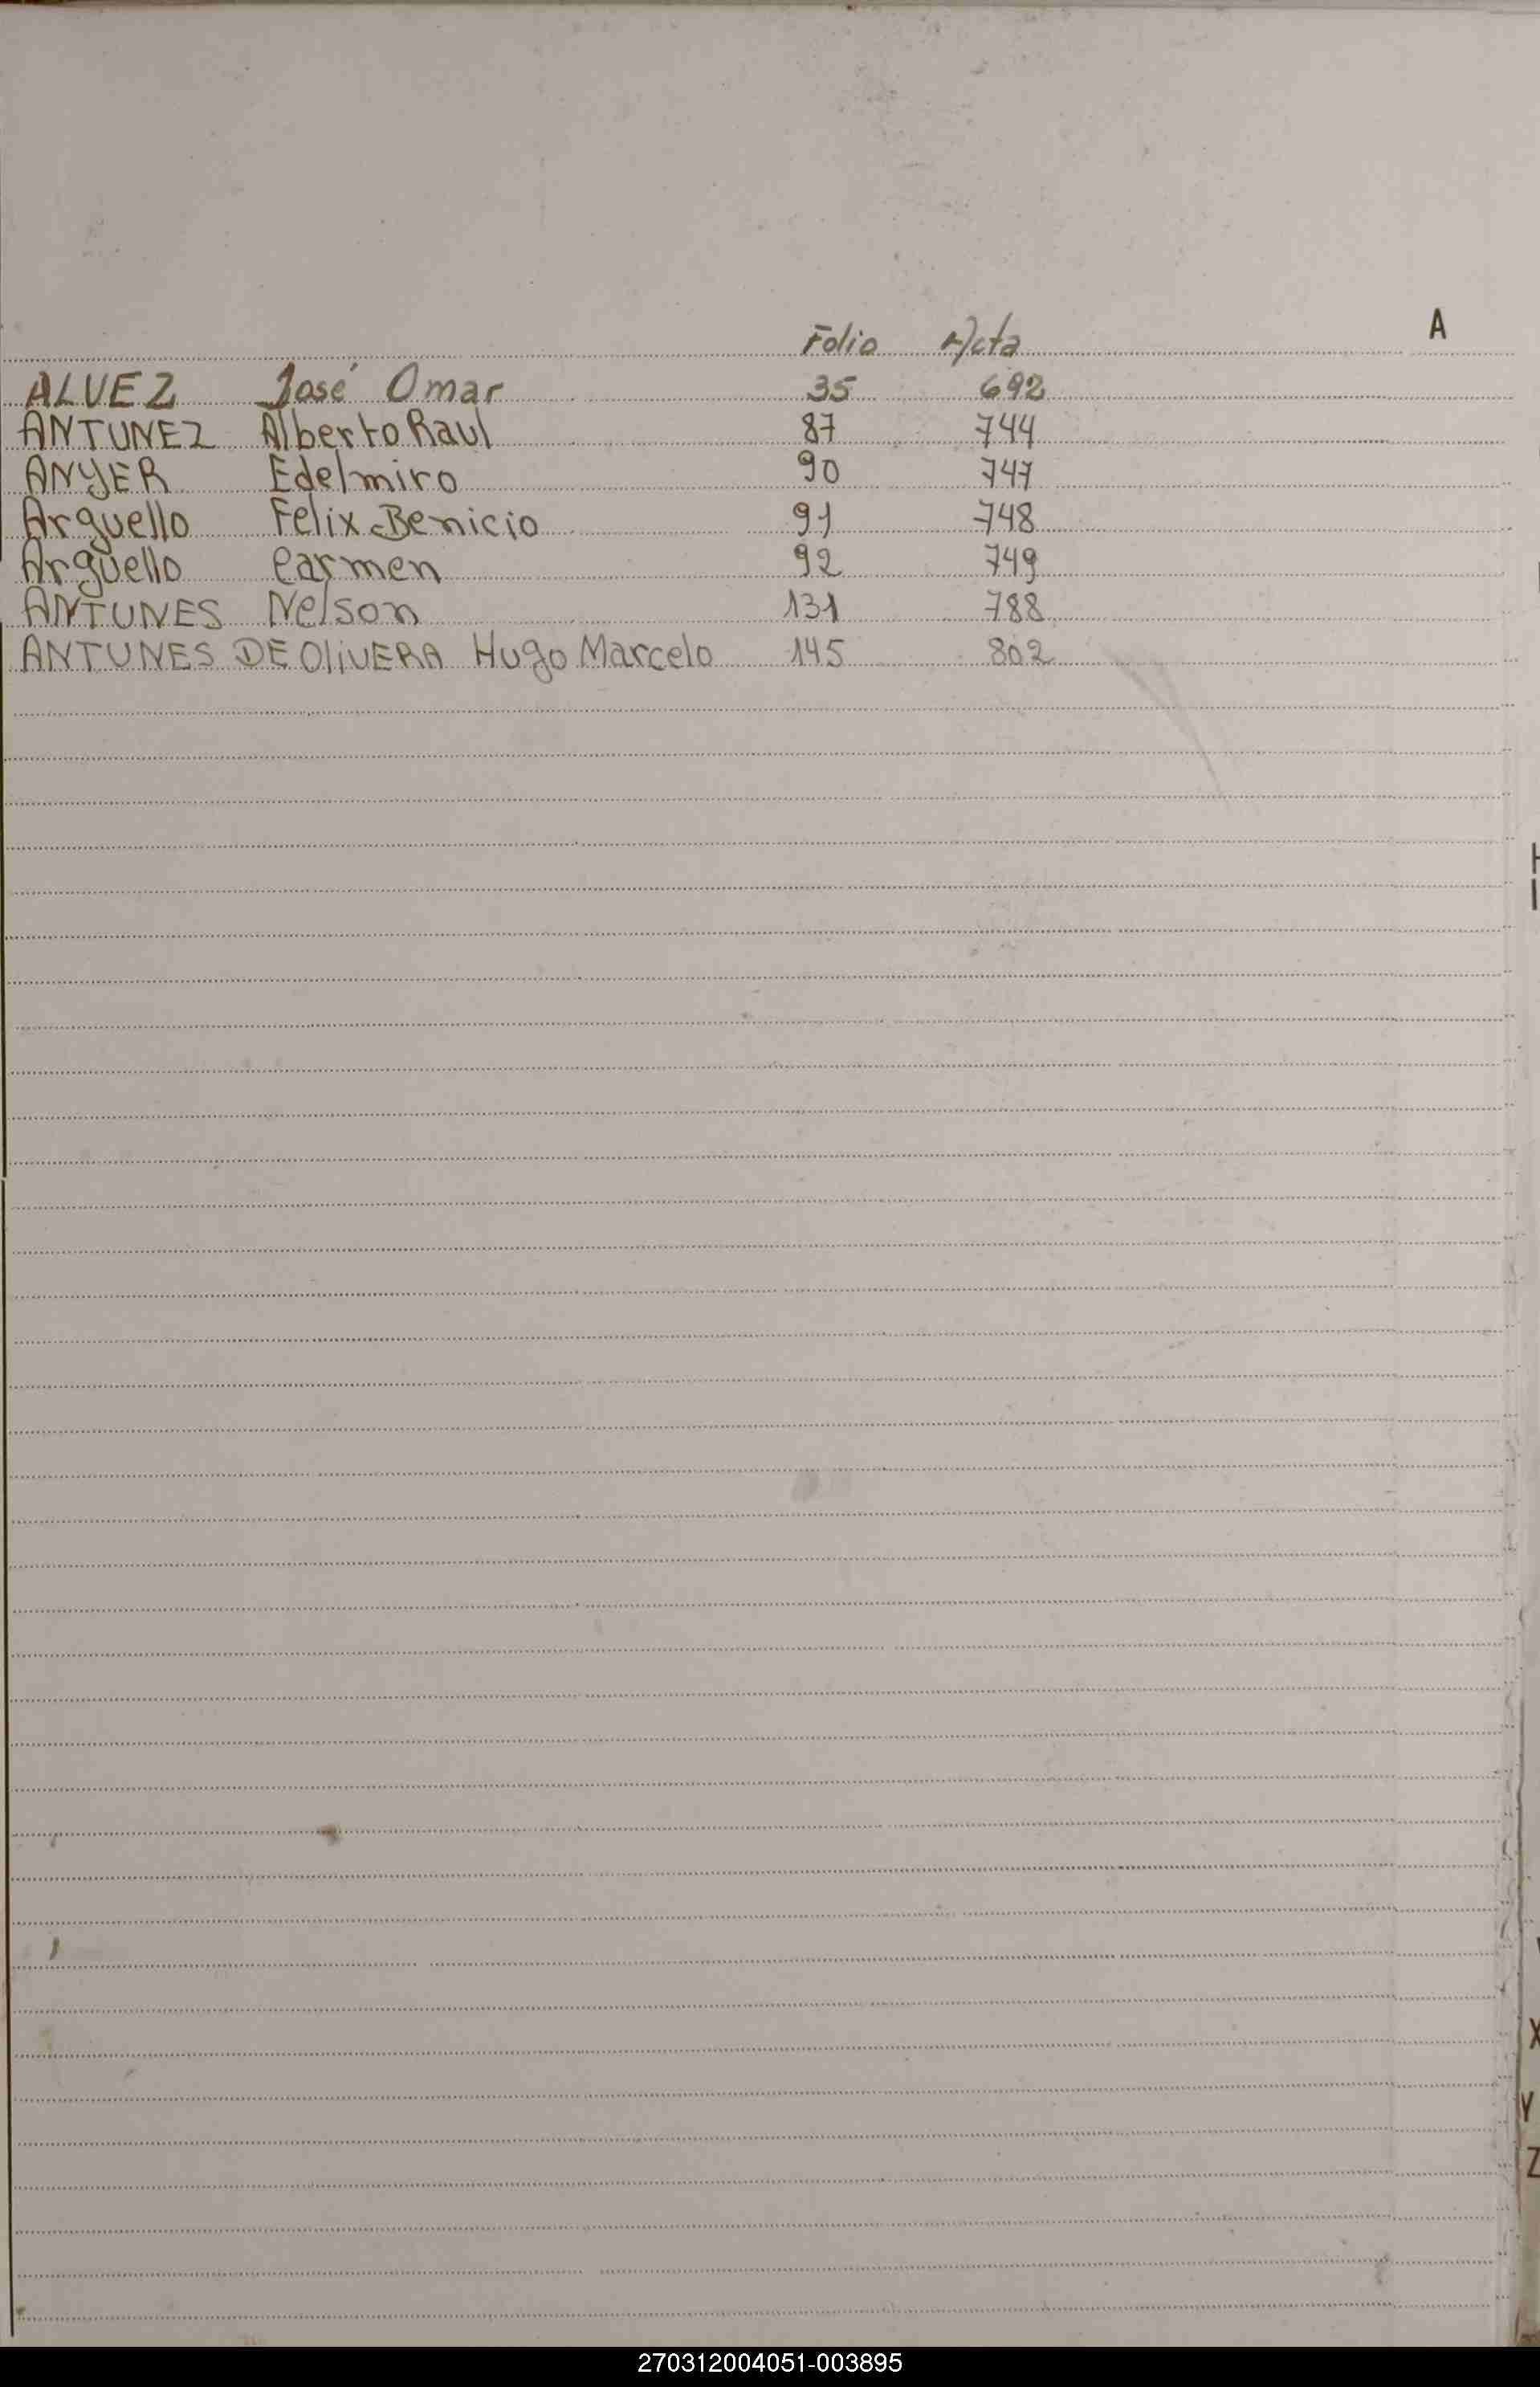 Folio Acta A
ALVEZ José Omar 35 692
ANTUNEZ Alberto Raul 87 744
ANYER Edelmiro 90 747
Arguello Felix Benicio 91 748
Arguello Carmen 92 749
ANTUNES Nelson 131 788
ANTUNES DE OliVERA Hugo Marcelo 145 802
H
I
X
Y
Z
270312004051-003895